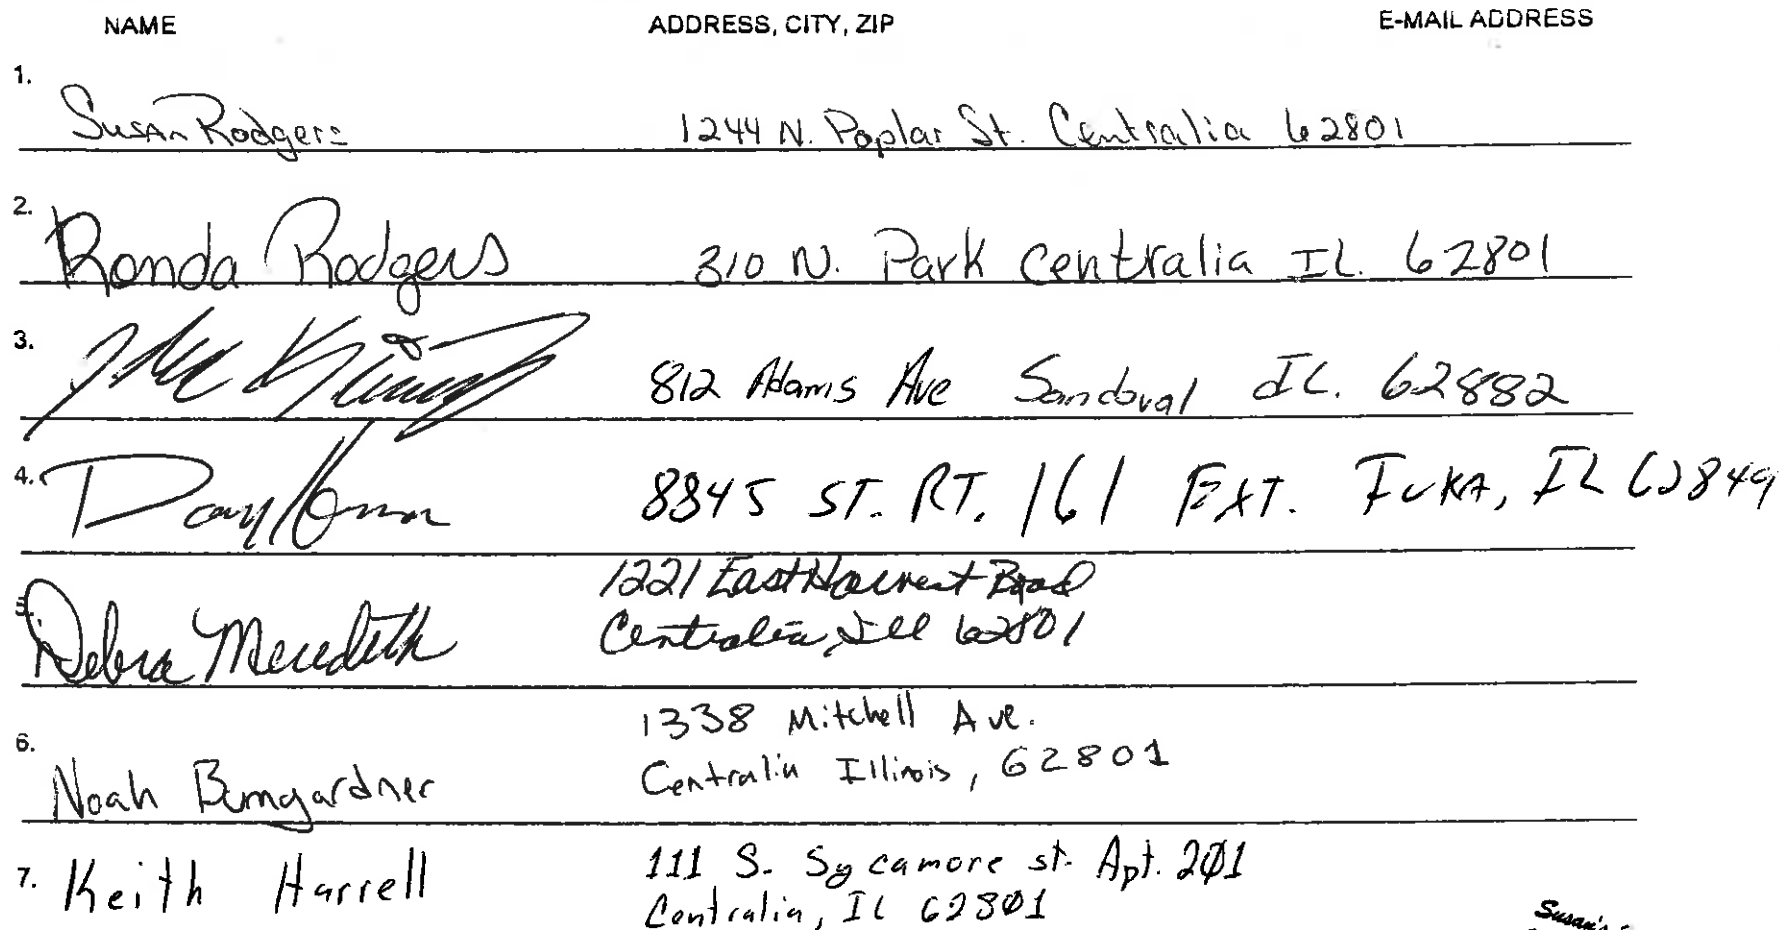 NAME ADDRESS, CITY, ZIP E-MAIL ADDRESS
1. Susan Rodgers 1244 N. Poplar St. Centralia 62801
2. Ronda Rodgers 310 N. Park Centralia IL. 62801
3. 812 Adams Ave Sandoval IL. 62882
4. 8845 ST. RT. 161 EXT. IUKA, IL 62849
1221 East Road
5. Debra Meredith Centralia, Ill 62801
1338 Mitchell Ave.
6. Noah Bumgardner Centralia Illinois, 62801
7. Keith Harrell 111 S. Sycamore st. Apt. 201
Centralia, IL 62801
Susan's